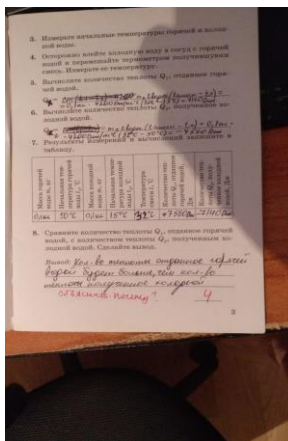 3. Измерьте начальные температуры горячей и холод-
ной воды.
4. Осторожно влейте холодную воду в сосуд с горячей
водой и перемешайте термометром получившуюся
смесь. Измерьте её температуру.
5. Вычислите количество теплоты Q₁, отданное горя-
чей водой.
6. Вычислите количество теплоты Q₂, полученное хо-
лодной водой.
7. Результаты измерений и вычислений запишите в
таблицу.
Масса горячей воды m, кг
Начальная тем-пература горячей воды t, °C
Масса холодной воды m, кг
Начальная тем-пература холодной воды t, °C
Температура смеси t, °C
Количество теп-лоты Q, отданное горячей водой, Дж
Количество теп-лоты Q, полу-ченное холодной водой, Дж
0,1кг 50°C 0,1кг 15°C 32°C
8. Сравните количество теплоты Q₁, отданное горячей
водой, с количеством теплоты Q₂, полученным хо-
лодной водой. Сделайте вывод.
Вывод: Кол-во теплоты отданное горячей
водой будет больше, чем кол-во
теплоты полученное холодной
объясните почему? 4
3